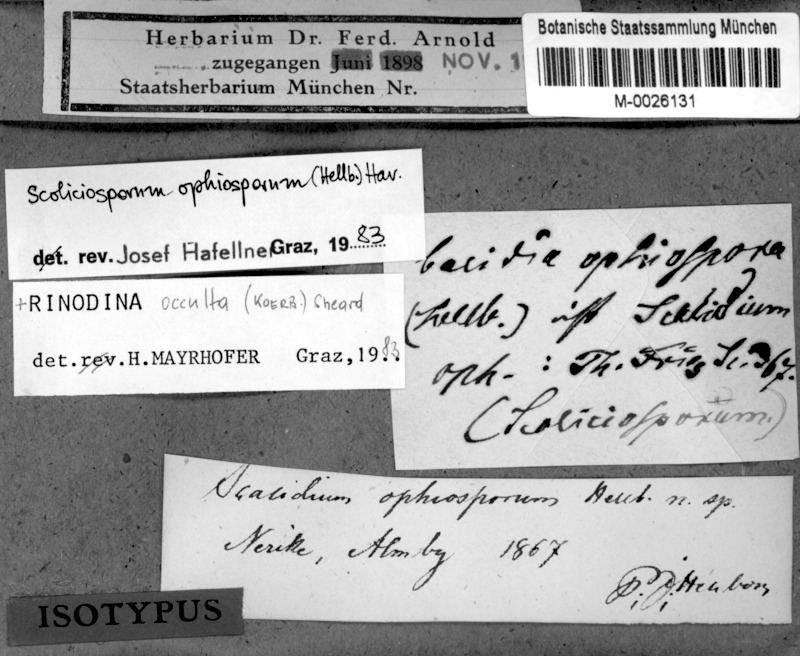 Herbarium Dr. Ferd. Arnold
zugegangen Juni 1898 NOV. 1
Staatsherbarium München Nr.
Botanische Staatssammlung München
M-0026131
Scoliciosporum ophiosporum (Hellb.) Hav.
det. rev. Josef Hafellner Graz, 1983
+RINODINA occulta (KOERB.) Sheard
det.rev.H.MAYRHOFER Graz,1983
bacidia ophiospora
(Hellb.) ist Scalidium
oph. : Th. Fries Sc. 367.
(Scoliciosporum.)
Scalidium ophiosporum Hellb. n. sp.
Nerike, Almby 1867
P. J. Hellbom
ISOTYPUS